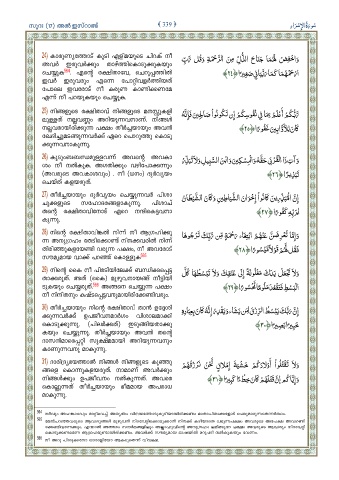 സൂറ: (17) അൽ ഇസ്റാഅ്
( 339 )
سُورَةُ الْإِسْرَاءِ
24) കാരുണ്യത്തോട് കൂടി എളിമയുടെ ചിറക് നീ
അവർ ഇരുവർക്കും താഴ്ത്തികൊടുക്കുകയും
ചെയ്യുക. എന്റെ രക്ഷിതാവേ, ചെറുപ്പത്തിൽ
ഇവർ ഇരുവരും എന്നെ പോറ്റിവളർത്തിയത്
പോലെ ഇവരോട് നീ കരുണ കാണിക്കണമേ
എന്ന് നീ പറയുകയും ചെയ്യുക.
وَاخْفِضْ لَهُمَا جَنَاحَ الذُّلِّ مِنَ الرَّحْمَةِ وَقُل رَّبِّ
ارْحَمْهُمَا كَمَا رَبَّيَانِي صَغِيرًا ﴿٢٤﴾
25) നിങ്ങളുടെ രക്ഷിതാവ് നിങ്ങളുടെ മനസ്സുകളി
ലുള്ളത് നല്ലവണ്ണം അറിയുന്നവനാണ്. നിങ്ങൾ
നല്ലവരായിരിക്കുന്ന പക്ഷം തീർച്ചയായും അവൻ
ഖേദിച്ചുമടങ്ങുന്നവർക്ക് ഏറെ പൊറുത്തു കൊടു
ക്കുന്നവനാകുന്നു.
رَّبُّكُمْ أَعْلَمُ بِمَا فِي نُفُوسِكُمْ إِن تَكُونُوا صَالِحِينَ فَإِنَّهُ
كَانَ لِلْأَوَّابِينَ غَفُورًا ﴿٢٥﴾
26) കുടുംബബന്ധമുള്ളവന് അവന്റെ അവകാ
ശം നീ നൽകുക. അഗതിക്കും വഴിപോക്കന്നും
(അവരുടെ അവകാശവും) . നീ (ധനം) ദുർവ്യയം
ചെയ്ത് കളയരുത്.
وَآتِ ذَا الْقُرْبَىٰ حَقَّهُ وَالْمِسْكِينَ وَابْنَ السَّبِيلِ وَلَا تُبَذِّرْ
تَبْذِيرًا ﴿٢٦﴾
27) തീർച്ചയായും ദുർവ്യയം ചെയ്യുന്നവർ പിശാ
ചുക്കളുടെ സഹോദരങ്ങളാകുന്നു. പിശാച്
തന്റെ രക്ഷിതാവിനോട് ഏറെ നന്ദികെട്ടവനാ
കുന്നു.
إِنَّ الْمُبَذِّرِينَ كَانُوا إِخْوَانَ الشَّيَاطِينِ وَكَانَ الشَّيْطَانُ
لِرَبِّهِ كَفُورًا ﴿٢٧﴾
28) നിന്റെ രക്ഷിതാവിങ്കൽ നിന്ന് നീ ആഗ്രഹിക്കു
ന്ന അനുഗ്രഹം തേടിക്കൊണ്ട് നിനക്കവരിൽ നിന്ന്
തിരിഞ്ഞുകളയേണ്ടി വരുന്ന പക്ഷം, നീ അവരോട്
സൗമ്യമായ വാക്ക് പറഞ്ഞ് കൊള്ളുക.
وَإِمَّا تُعْرِضَنَّ عَنْهُمُ ابْتِغَاءَ رَحْمَةٍ مِّن رَّبِّكَ تَرْجُوهَا
فَقُل لَّهُمْ قَوْلًا مَّيْسُورًا ﴿٢٨﴾
29) നിന്റെ കൈ നീ പിരടിയിലേക്ക് ബന്ധിക്കപ്പെട്ട
താക്കരുത്. അത് (കൈ) മുഴുവനായങ്ങ് നീട്ടിയി
ടുകയും ചെയ്യരുത്. അങ്ങനെ ചെയ്യുന്ന പക്ഷം
നീ നിന്ദിതനും കഷ്ടപ്പെട്ടവനുമായിരിക്കേണ്ടിവരും.
وَلَا تَجْعَلْ يَدَكَ مَغْلُولَةً إِلَىٰ عُنُقِكَ وَلَا تَبْسُطْهَا كُلَّ
الْبَسْطِ فَتَقْعُدَ مَلُومًا مَّحْسُورًا ﴿٢٩﴾
30) തീർച്ചയായും നിന്റെ രക്ഷിതാവ് താൻ ഉദ്ദേശി
ക്കുന്നവർക്ക് ഉപജീവനമാർഗം വിശാലമാക്കി
കൊടുക്കുന്നു. (ചിലർക്കത്) ഇടുങ്ങിയതാക്കു
കയും ചെയ്യുന്നു. തീർച്ചയായും അവൻ തന്റെ
ദാസൻമാരെപ്പറ്റി സൂക്ഷ്മമായി അറിയുന്നവനും
കാണുന്നവനു മാകുന്നു.
إِنَّ رَبَّكَ يَبْسُطُ الرِّزْقَ لِمَن يَشَاءُ وَيَقْدِرُ إِنَّهُ كَانَ بِعِبَادِهِ
خَبِيرًا بَصِيرًا ﴿٣٠﴾
31) ദാരിദ്ര്യഭയത്താൽ നിങ്ങൾ നിങ്ങളുടെ കുഞ്ഞു
ങ്ങളെ കൊന്നുകളയരുത്. നാമാണ് അവർക്കും
നിങ്ങൾക്കും ഉപജീവനം നൽകുന്നത്. അവരെ
കൊല്ലുന്നത് തീർച്ചയായും ഭീമമായ അപരാധ
മാകുന്നു.
وَلَا تَقْتُلُوا أَوْلَادَكُمْ خَشْيَةَ إِمْلَاقٍ نَّحْنُ نَرْزُقُهُمْ
وَإِيَّاكُمْ إِنَّ قَتْلَهُمْ كَانَ خِطْئًا كَبِيرًا ﴿٣١﴾